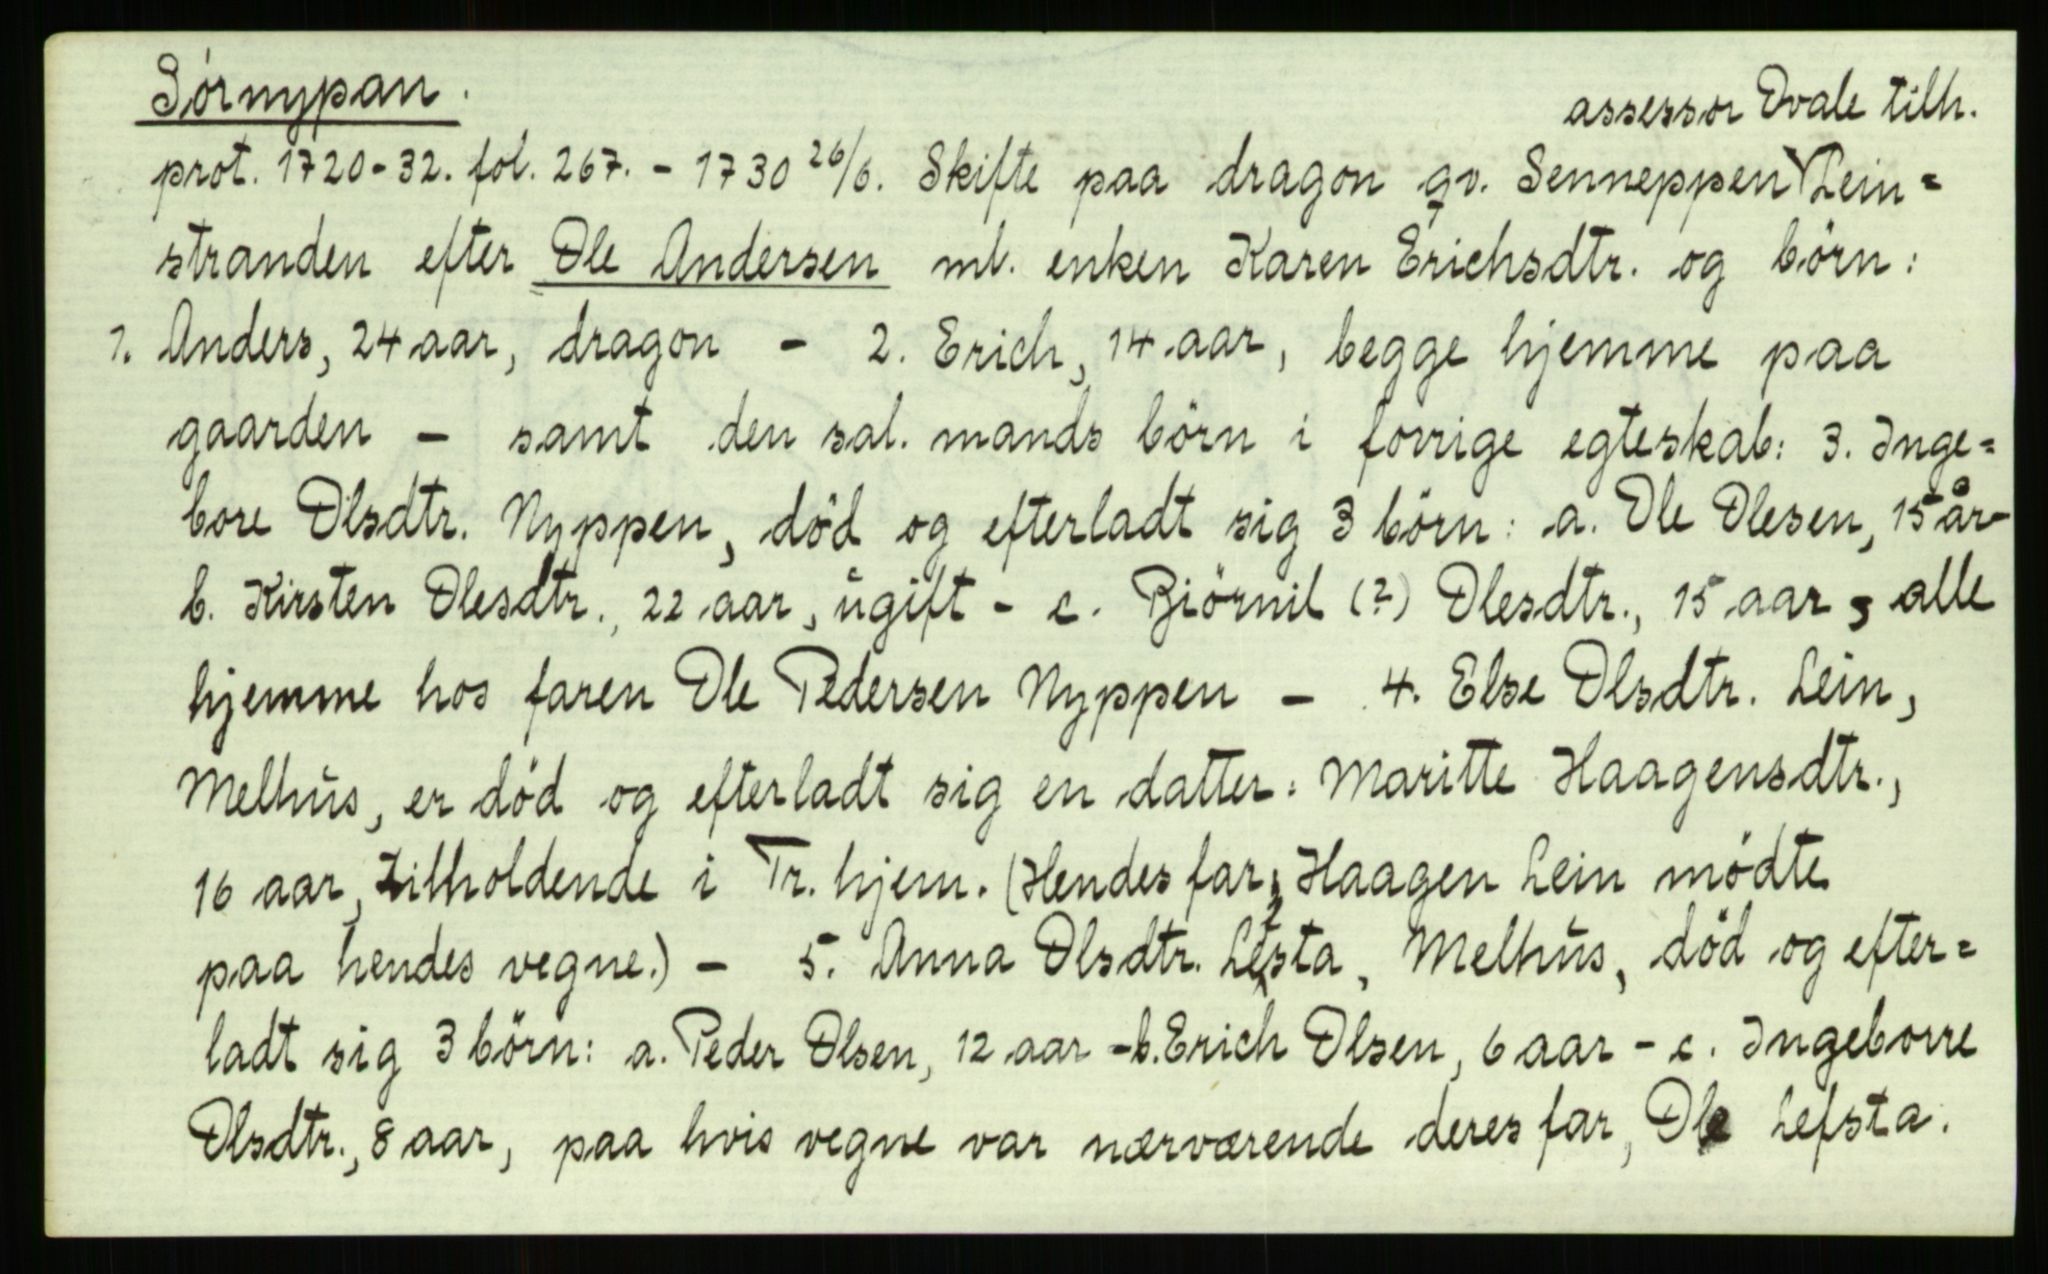 Sörnypan.
assessor Dvale tilh.
prot. 1720-32. fol. 267. - 1730 26/6. Skifte paa dragon qv. Senneppen Lein=
stranden efter Ole Andersen ml. enken Karen Erichsdtr. og börn:
1. Anders, 24 aar, dragon - 2. Erich, 14 aar, begge hjemme paa
gaarden - samt den sal. mands börn i forrige egteskab: 3. Inge=
bore Olsdtr. Nyppen, död og efterladt sig 3 börn: a. Ole Olesen, 15 år
b. Kirsten Olesdtr., 22 aar, ugift - c. Biörnil (?) Olesdtr., 15 aar, alle
hjemme hos faren Ole Pedersen Nyppen - 4. Else Olsdtr. Lein,
Melhus, er död og efterladt sig en datter: Maritte Haagensdtr.,
16 aar, tilholdende i Tr.hjem. (Hendes far, Haagen Lein mödte
paa hendes vegne.) - 5. Anna Olsdtr. Lefsta, Melhus, död og efter=
ladt sig 3 börn: a. Peder Olsen, 12 aar - b. Erich Olsen, 6 aar - c. Ingeborre
Olsdtr., 8 aar, paa hvis vegne var nærværende deres far, Ole Lefsta.